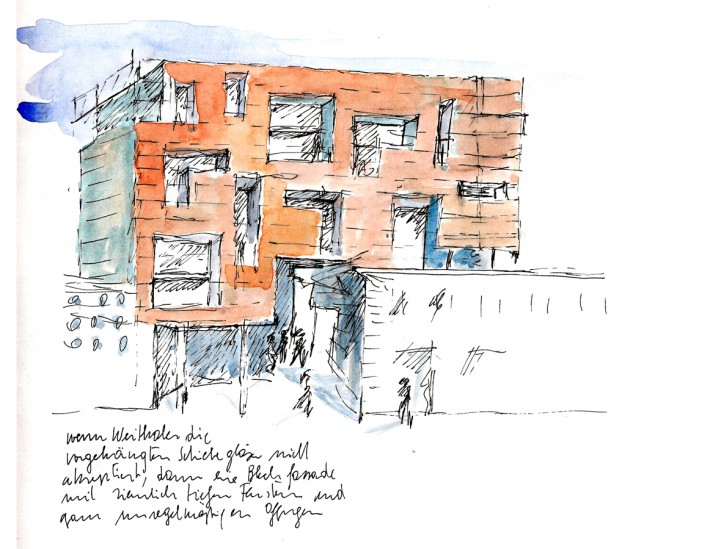 wenn Weithaler die
vorgehängten Schiebegläser nicht
akzeptiert, dann eine Blechfassade
mit ziemlich tiefen Fenstern und
ganz unregelmäßigen Öffnungen